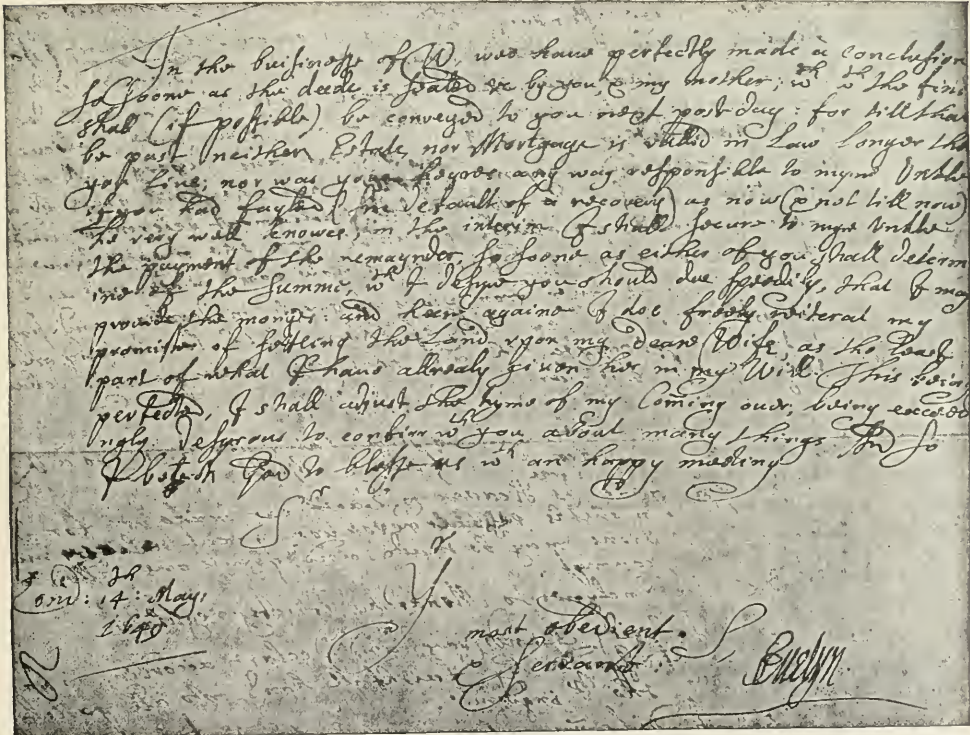 In the buisinesse of W. wee have perfectly made a conclusion
so soone as the deede is sealed &c by you, & my mother; wch wth the fine
shall (if possible) be conveyed to you next post-day: for till that
be past neither Estate, nor Mortgage is vallid in Law longer the
you live; nor was your heyres any way responsible to myne Vnkle
if you had fayled (in default of a recovery) as now (& not till now)
he very well knowes, in the interim I shall secure to myne Vnkle
the payment of the remaynder, so soone as either of you shall determ
ine of the summe, wch I desyre you should doe speedily, that I may
provide the monye; and heere againe I doe freely reiterat my
promisse of settling the Land vpon my deare Wife, as the least
part of what I have allready given her in my Will. This being
perfected, I shall adjust the tyme of my Coming over, being exceed
ingly desyrous to conferr wth you about many things And so
I beseech God to blesse us wth an happy meeting
Sr
Yr
Lond: 14th: May.
1649
most obedient
servant
Evelyn